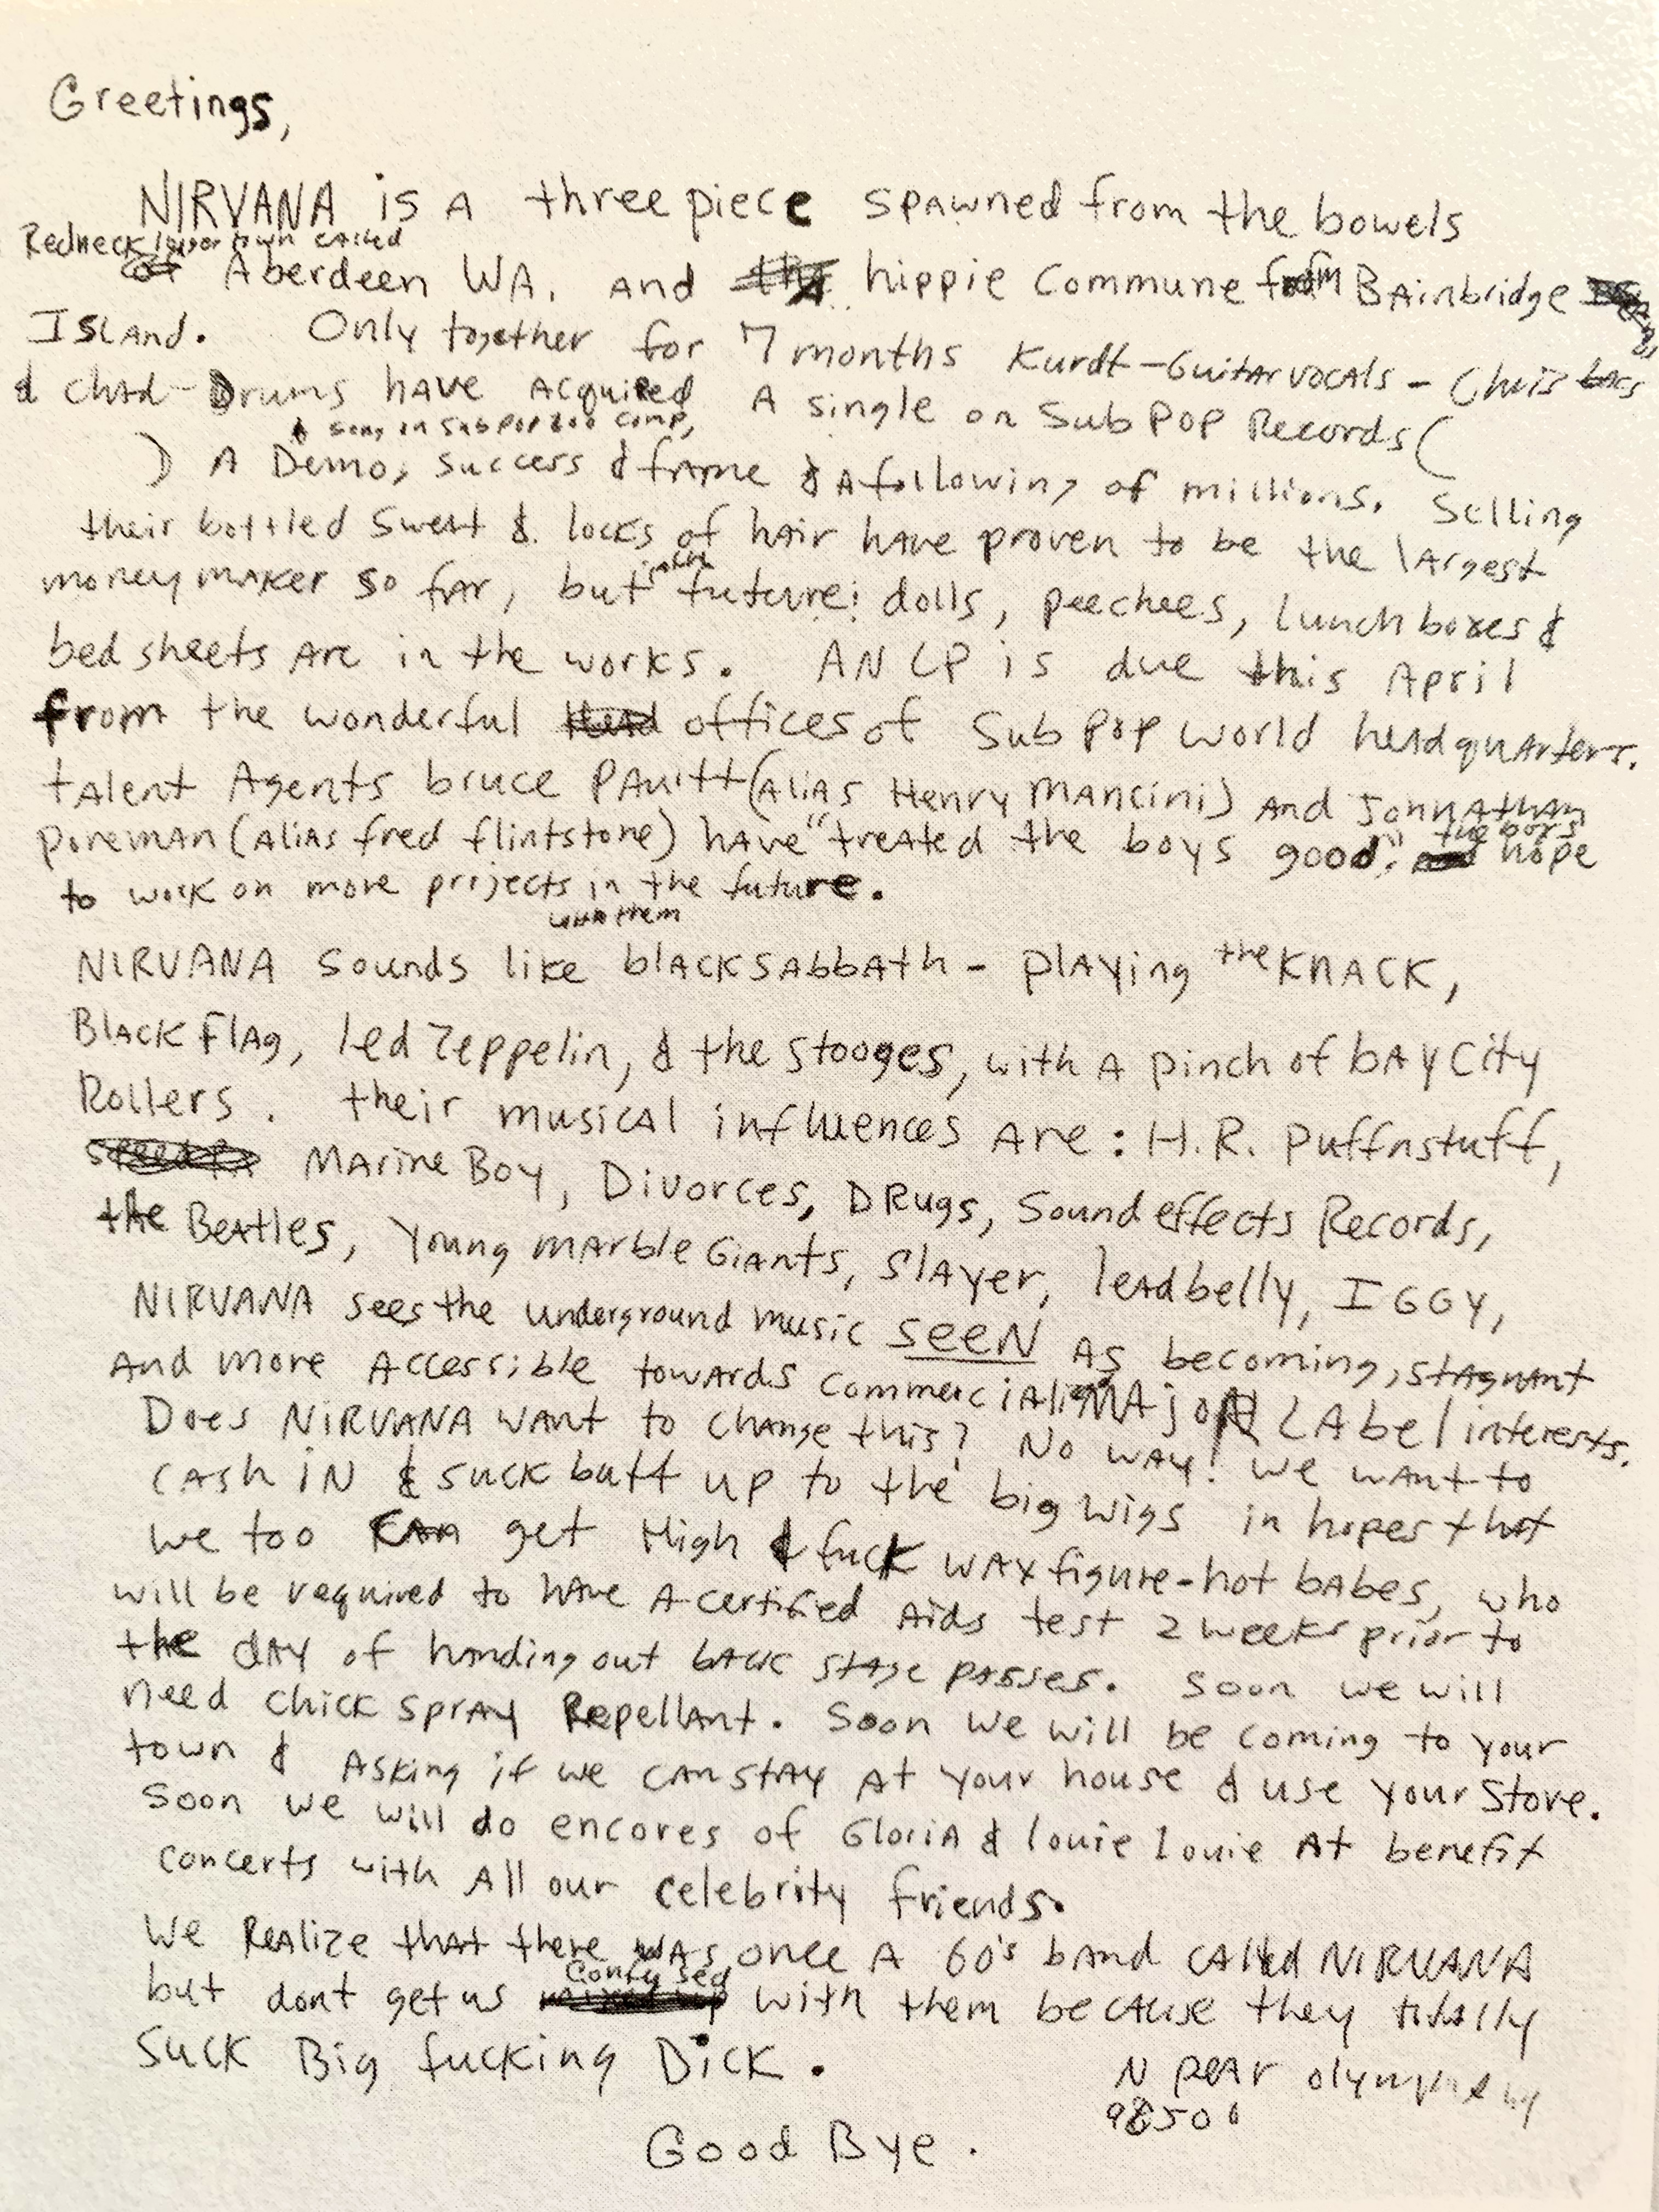 Greetings,
NIRVANA is A three piece spawned from the bowels
Redneck loser town called
of Aberdeen WA. and hippie Commune from Bainbridge
Island. Only together for 7 months Kurdt-Guitar vocals - Chris bass
& Chad-Drums have acquired A single on Sub Pop Records (
& song on Sub Pop 200 comp,
) A Demo, success & fame & A following of millions. Selling
their bottled Sweat & locks of hair have proven to be the largest
money maker so far, but in the future: dolls, peechees, Lunch boxes &
bed sheets Are in the works. AN LP is due this April
from the wonderful offices of Sub Pop World headquarters.
talent Agents bruce PAvitt (Alias Henry Mancini) And Johnathan
poneman (Alias fred flintstone) have "treated the boys good," the boys hope
to work on more projects in the future.
with them
NIRVANA sounds like blACK SAbbAth - plAying the KNACK,
Black FlAg, Led Zeppelin, & the stooges, with A pinch of bAy City
Rollers. their musical influences Are: H.R. Puffnstuff,
MArine Boy, Divorces, DRugs, Sound effects Records,
the Beatles, Young mArble Giants, SlAyer, leadbelly, IGGY,
NIRVANA sees the underground music SEEN As becoming, stagnant
And more Accessible towards commercial MAjoR LAbel interests.
Does NIRVANA wAnt to change this? No way! We want to
CAsh iN & suck butt up to the big wigs in hopes that
we too CAn get High & fuck wAx figure-hot babes, who
will be required to hAve A certified Aids test 2 weeks prior to
the dAy of handing out back stage passes. Soon we will
need chick sprAy Repellant. Soon we will be coming to your
town & Asking if we CAn stAy At your house & use your Stove.
Soon we will do encores of GloriA & louie Louie At benefit
concerts with All our celebrity friends.
We ReAlize that there wAs once A 60's bAnd cAlled NIRVANA
but dont get us confused with them becAuse they totally
Suck Big fucking Dick.
N peAr olympia
98506
Good Bye.